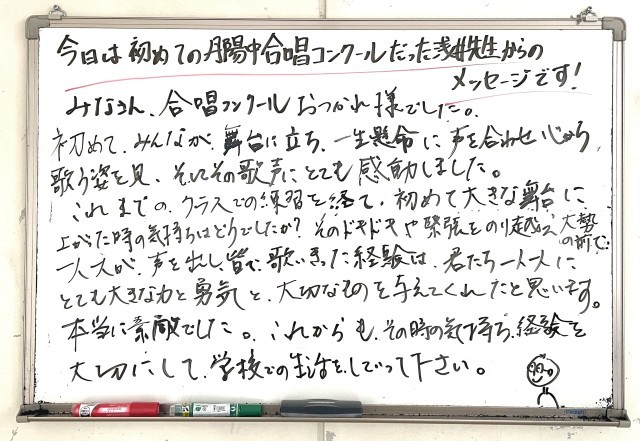 今日は初めての丹陽中合唱コンクールだった浅井先生からの
メッセージです!
みなさん、合唱コンクールおつかれ様でした。
初めて、みんなが、舞台に立ち、一生懸命に声を合わせ心から
歌う姿を見、そしてその歌声にとても感動しました。
これまでの、クラスでの練習を経て、初めて大きな舞台に
上がった時の気持ちはどうでしたか?そのドキドキや緊張をのり越え、大勢の前で、
一人一人が、声を出し、皆で、歌いきった経験は、君たち一人一人に
とても大きな力と勇気と、大切なものを与えてくれたと思います。
本当に素敵でした。これからも、その時の気持ち、経験を
大切にして、学校での生活をしていって下さい。